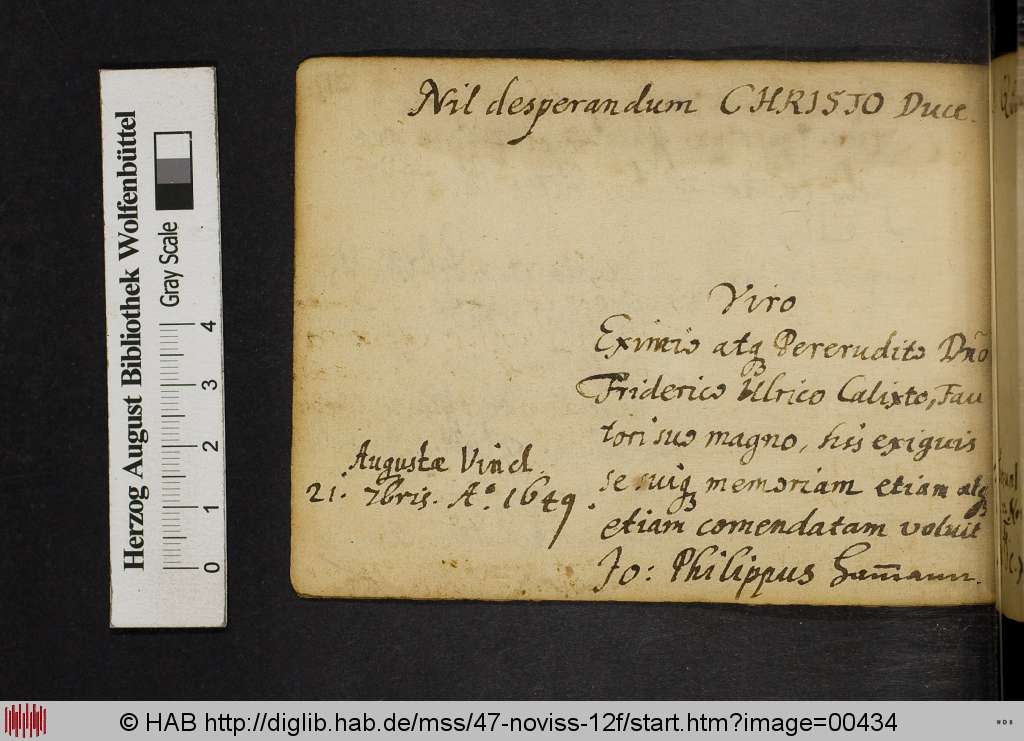 Nil desperandum CHRISTO Duce.
Viro
Eximio atq Pererudito Dño
Friderico Ulrico Calixto, Fau
tori suo magno, his exiguis
se suiq memoriam etiam atq
etiam comendatam voluit
Jo: Philippus
Augustæ Vindel.
21. 7bris. A° 1649.
Herzog August Bibliothek Wolfenbüttel
Gray Scale
0 1 2 3 4
© HAB http://diglib.hab.de/mss/47-noviss-12f/start.htm?image=00434